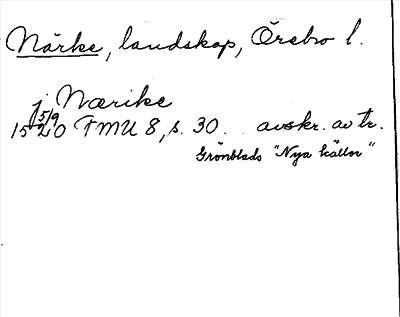 Närke, landskap, Örebro l.
j Nærike
15 5/9 20 FMU 8, s. 30. avskr. av tr.
Grönblads "Nya källor"